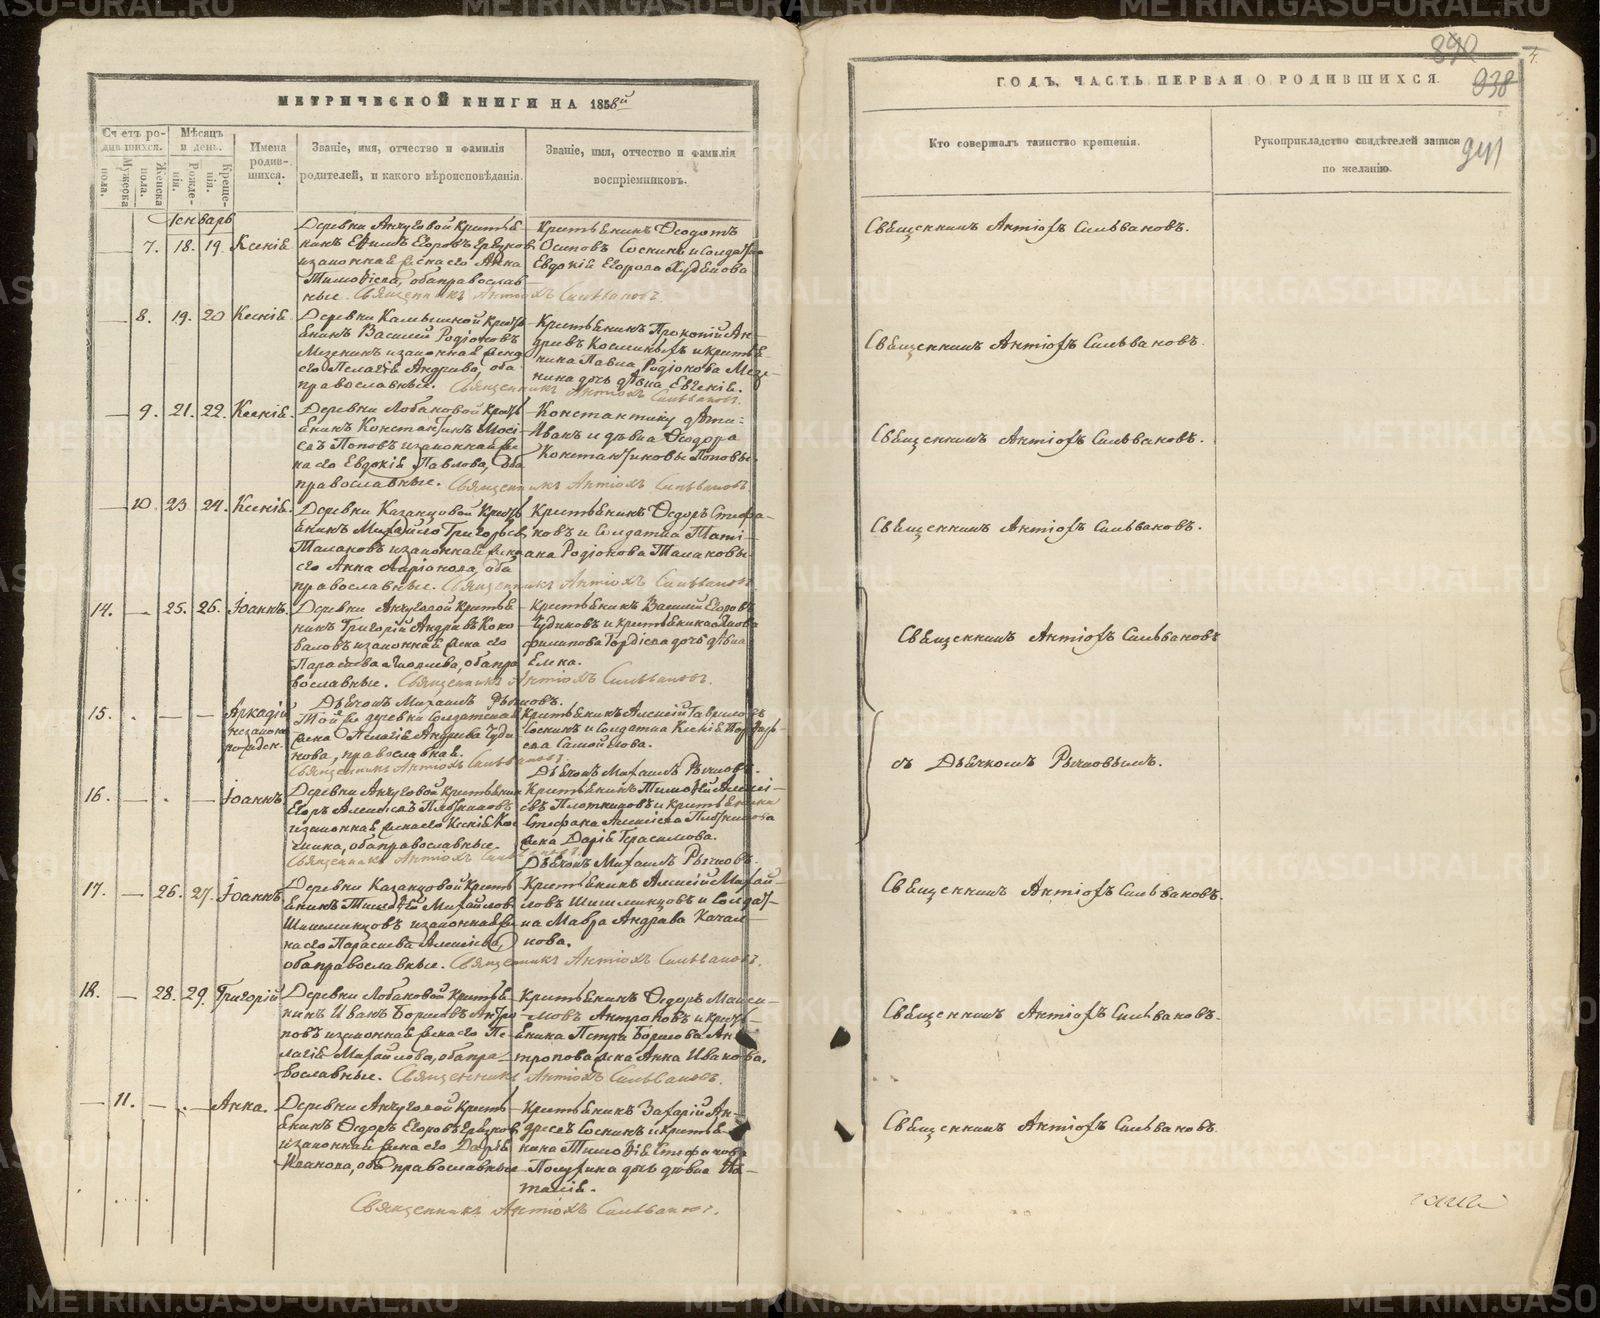 МЕТРИЧЕСКОЙ КНИГИ НА 1858й
Счетъ родившихся.
Мѣсяцъ и день.
Имена родившихся.
Званіе, имя, отчество и фамилія родителей, и какого вѣроисповѣданія.
Званіе, имя, отчество и фамилія воспріемниковъ.
Мужеска пола.
Женска пола.
Рожденія.
Крещенія.
Январь
7. 18. 19. Ксенія
Деревни Анчуговой Крестья
нинъ Егоровъ
и законная жена его Анна
Тимофѣева, оба православ
ные. Священникъ Антіохъ Сильвановъ.
Крестьянинъ Ѳеодотъ
Осиповъ Соснинъ и Солдатка
Евдокія Егорова
8. 19. 20 Ксенія
Деревни Камышной Кресть
янинъ Василій Родіоновъ
Мезенинъ и законная жена
его Пелагія Андреева, оба
православные. Священникъ Антіохъ Сильвановъ.
Крестьянинъ Прокопій Ан-
дреевъ и крестья
нина Павла Родіонова Мезе-
нина дочь дѣвица Евгенія.
9. 21. 22. Ксенія.
Деревни Лобановой Кресть
янинъ Константинъ Моисе
евъ Поповъ и законная же
на его Евдокія Павлова, оба
православные. Священникъ Антіохъ Сильвановъ.
Константину дѣти:
Иванъ и дѣвица Ѳеодора
Константиновы Поповы.
10 23 24. Ксенія.
Деревни Казанцовой Кресть
янинъ Михайло Григорьев
Талановъ и законная жена
его Анна Ларіонова, оба
православные. Священникъ Антіохъ Сильвановъ.
Крестьянинъ Ѳедоръ Стефа-
новъ и Солдатка Тати-
ана Родіонова Талановы.
14. — 25. 26. Іоаннъ.
Деревни Анчуговой Крестья
нинъ Григорій Андреевъ Коно-
валовъ и законная жена его
Параскева, оба пра
вославные. Священникъ Антіохъ Сильвановъ.
Крестьянинъ Василій Егоровъ
Чудиновъ и крестьянина Якова
Филипова Гордѣева дочь дѣвица
Елена.
Дьячокъ Михаилъ Рычковъ.
15. Аркадій незаконно рожден.
Той же деревни солдатская
жена Пелагія Андреева Чуди
нова, православная.
Священникъ Антіохъ Сильвановъ.
Крестьянинъ Алексій Гавриловъ
Соснинъ и Солдатка Ксенія
Самойлова.
Дьячокъ Михаилъ Рычковъ.
16. Іоаннъ.
Деревни Анчуговой Крестьянин
Егоръ Алексѣевъ Плотниковъ
и законная жена его Ксенія
оба православные.
Священникъ Антіохъ Сильвановъ.
Крестьянинъ Тимофѣй Алексѣ-
евъ Плотниковъ и крестьянина
Стефана Алексѣева Плотникова
жена Дарія Герасимова.
Дьячокъ Михаилъ Рычковъ.
17. — 26. 27. Іоаннъ
Деревни Казанцовой Кресть
янинъ Тимофѣй Михайлов
Шишминцовъ и законная же
на его Параскева Алексѣева,
оба православные. Священникъ Антіохъ Сильвановъ.
Крестьянинъ Алексій Михай-
ловъ Шишминцовъ и Солдат-
ка Мавра Андреева Качал-
кова.
18. — 28. 29. Григорій
Деревни Лобановой Крестья
нинъ Иванъ Борисовъ Антро
повъ и законная жена его Пе-
лагія Михайлова, оба пра-
вославные. Священникъ Антіохъ Сильвановъ.
Крестьянинъ Ѳедоръ Макси-
мовъ Антроповъ и кресть-
янина Петра Борисова Ан-
тропова жена Анна Иванова.
— 11. — — Анна.
Деревни Анчуговой Кресть
янинъ Ѳедоръ Егоровъ
и законная жена его Дарія
Иванова, оба православные
Крестьянинъ Захарій Ан-
дреевъ Соснинъ и крестья-
нина Тимофѣя Стефанова
дочь дѣвица На-
талія.
Священникъ Антіохъ Сильвановъ.
890
938
941
ГОДЪ, ЧАСТЬ ПЕРВАЯ О РОДИВШИХСЯ.
Кто совершалъ таинство крещенія.
Рукоприкладство свидѣтелей записи по желанію.
Священникъ Антіохъ Сильвановъ.
Священникъ Антіохъ Сильвановъ.
Священникъ Антіохъ Сильвановъ.
Священникъ Антіохъ Сильвановъ.
Священникъ Антіохъ Сильвановъ
съ Дьячкомъ Рычковымъ.
Священникъ Антіохъ Сильвановъ.
Священникъ Антіохъ Сильвановъ.
Священникъ Антіохъ Сильвановъ.
METRIKI.GASO-URAL.RU